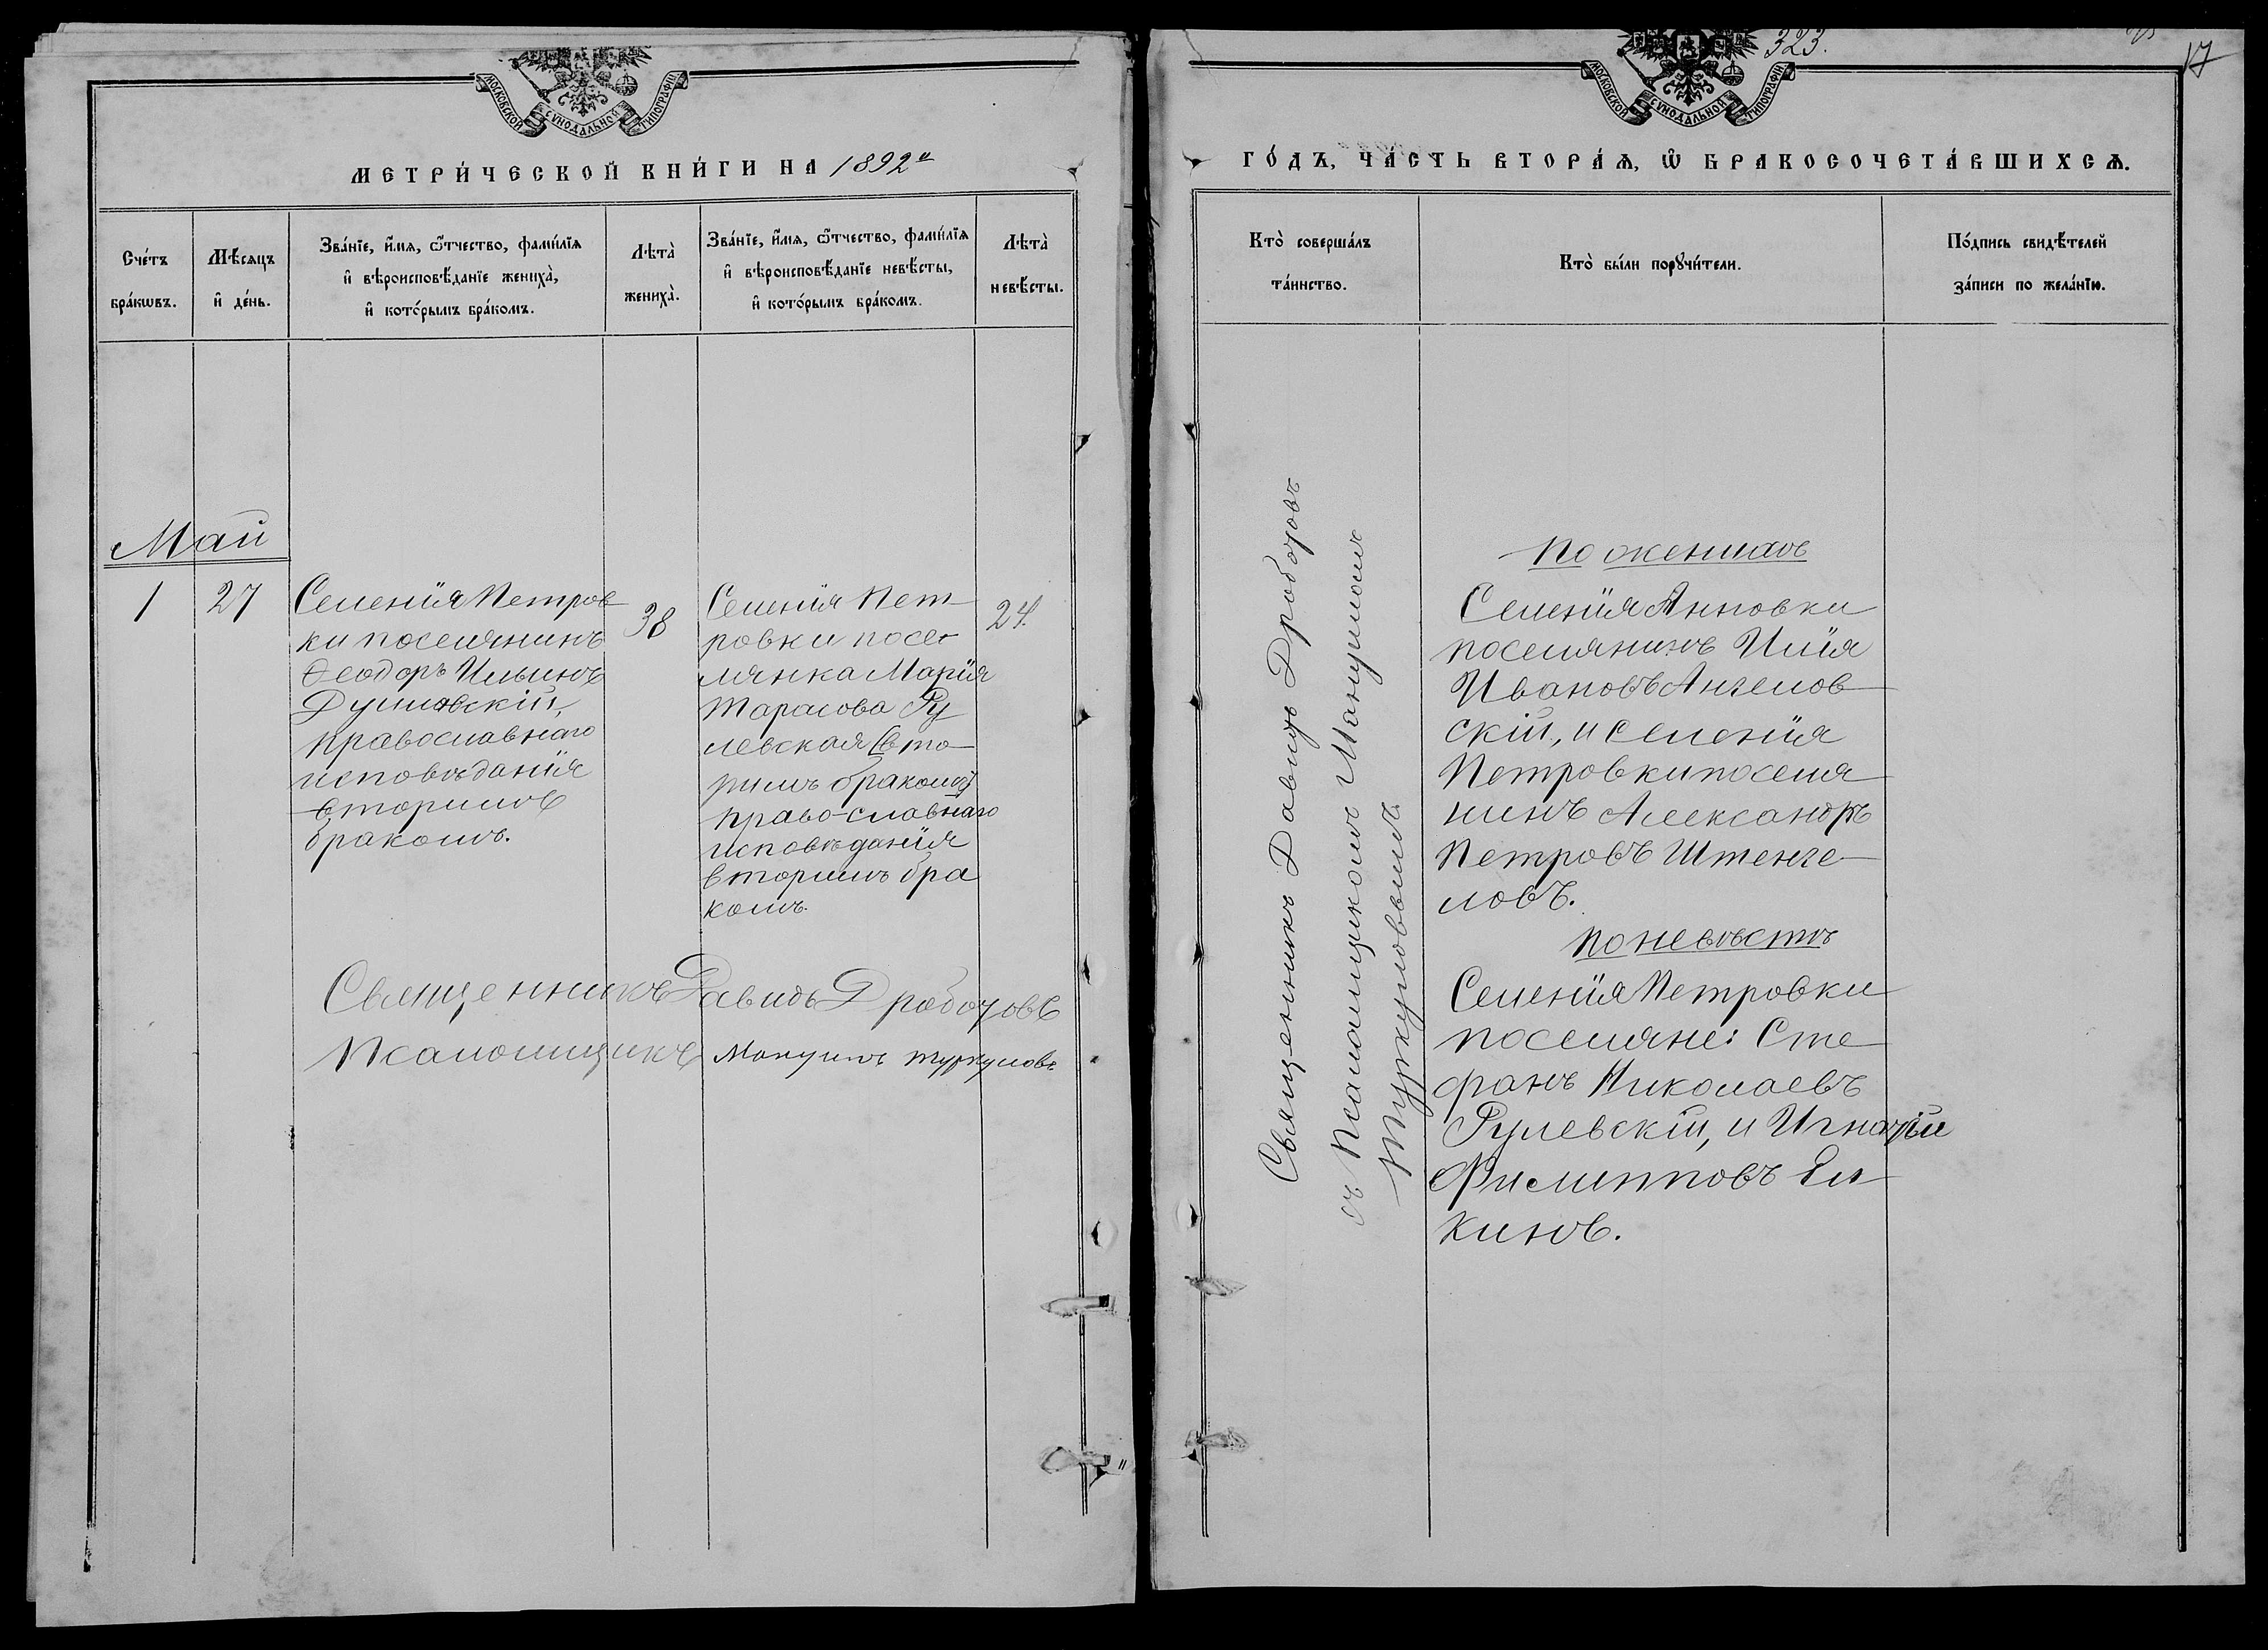 МОСКОВСКОЙ СѴНОДАЛЬНОЙ ТИПОГРАФІИ
МЕТРИ́ЧЕСКОЙ КНИ́ГИ НА 1892й
Сче́тъ бра́кѡвъ.
Мѣ́сяцъ и҆ де́нь.
Зва́нїе, и҆́мѧ, ѻ҆́тчество, фами́лїѧ
и҆ вѣроисповѣ́данїе жениха̀,
и҆ кото́рымъ бра́комъ.
Лѣта̀ жениха̀.
Зва́нїе, и҆́мѧ, ѻ҆́тчество, фами́лїѧ
и҆ вѣроисповѣ́данїе невѣ́сты,
и҆ кото́рымъ бра́комъ.
Лѣта̀ невѣ́сты.
Май
1
27
Селенія Петров
ки поселянинъ
Ѳеодоръ Ильинъ
Душловскій,
православнаго
исповѣданія
вторимъ
бракомъ.
38
Селенія Пет
ровки посе
лянка Марія
Тарасова Ру
левская (вто
римъ бракомъ)
право-славнаго
исповѣданія
вторимъ бра
комъ.
24.
Священникъ Давидъ Дроботовъ
Псаломщикъ Мануилъ Туркуловъ
323.
17
МОСКОВСКОЙ СѴНОДАЛЬНОЙ ТИПОГРАФІИ
ГО́ДЪ, ЧА́СТЬ ВТОРА́Ѧ, Ѽ БРАКОСОЧЕТА́ВШИХСѦ.
Кто̀ соверша́лъ
та́инство.
Кто̀ бы́ли порꙋчи́тели.
По́дпись свидѣ́телей
за́писи по жела́нїю.
Священникъ Давидъ Дроботовъ
съ Псаломщикомъ Мануиломъ
Туркуловымъ
По женихѣ
Селенія Анновки
поселянинъ Илія
Ивановъ Ангелов
скій, и селенія
Петровки поселя
нинъ Александръ
Петровъ Штенге
ловъ.
По невѣстѣ
Селенія Петровки
поселяне: Сте
фанъ Николаевъ
Рулевскій, и Игнатій
Филипповъ Ел
кинъ.